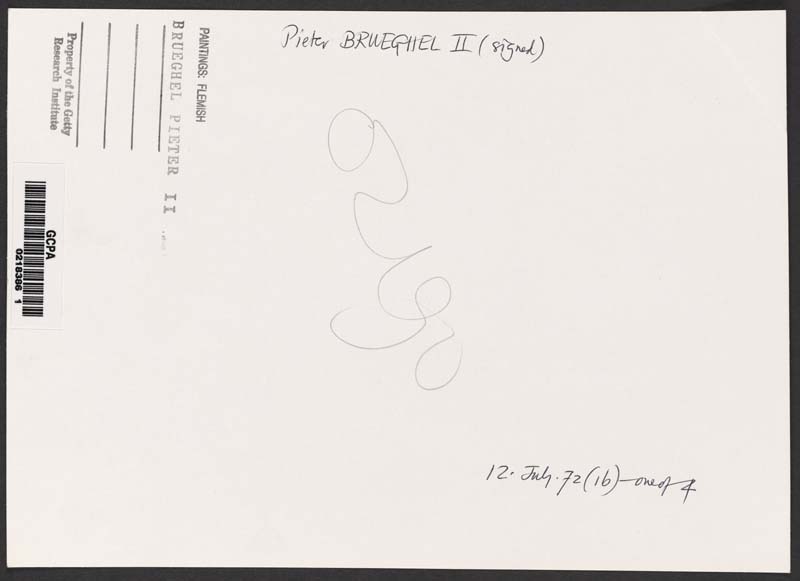 Pieter BRUEGHEL II (signed)
PAINTINGS: FLEMISH
BRUEGHEL PIETER II
Property of the Getty
Research Institute
GCPA
0218386 1
12. July. 72 (1b) - one of 4